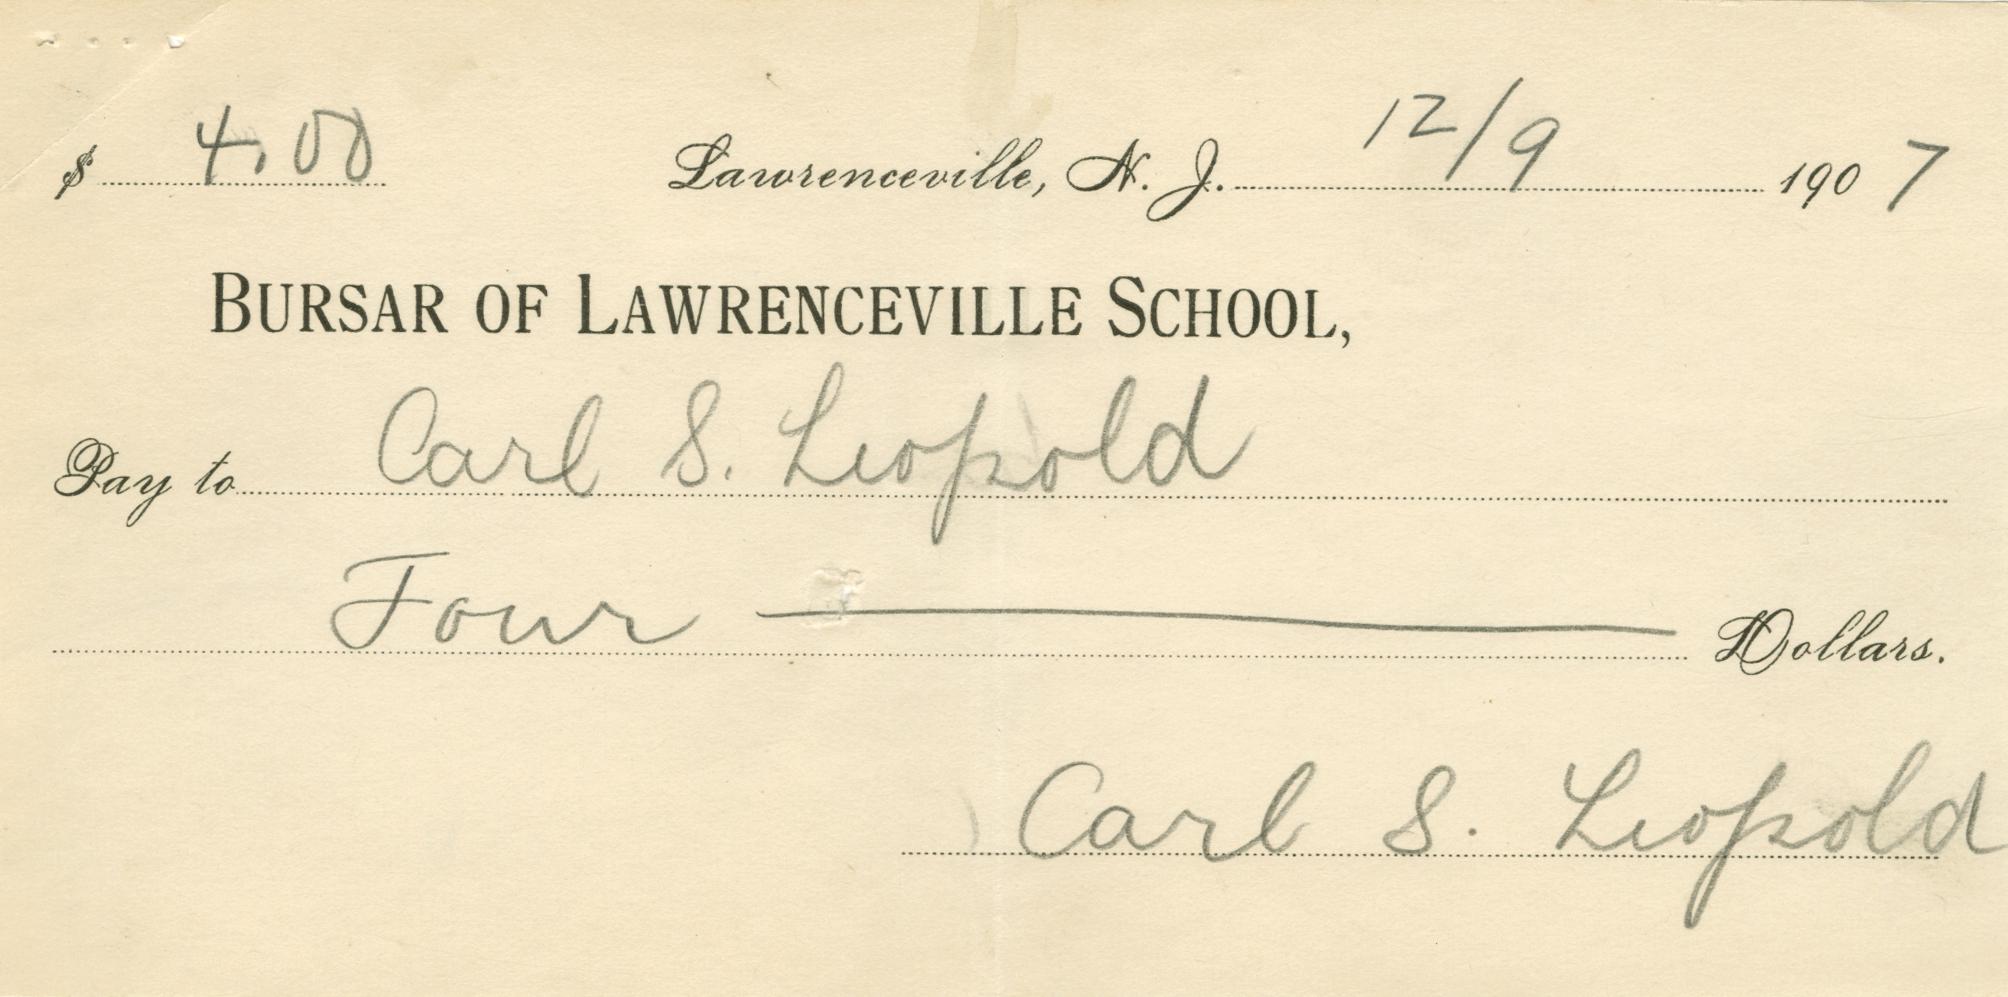 $ 4.00 Lawrenceville, N. J. 12/9 1907
BURSAR OF LAWRENCEVILLE SCHOOL,
Pay to Carl S. Leopold
Four Dollars.
Carl S. Leopold